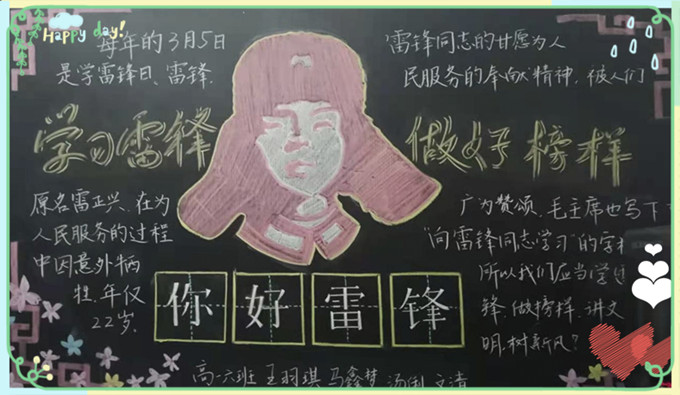 Happy day!
每年的3月5日
是学雷锋日、雷锋,
雷锋同志的甘愿为人
民服务的奉献精神,被人们
学习雷锋
做好榜样
原名雷正兴、在为
人民服务的过程
中因意外牺
牲,年仅
22岁.
广为赞颂,毛主席也写下
"向雷锋同志学习"的字
所以我们应当学
锋,做榜样、讲文
明,树新风?
你好雷锋
高一六班 王羽琪 马鑫梦